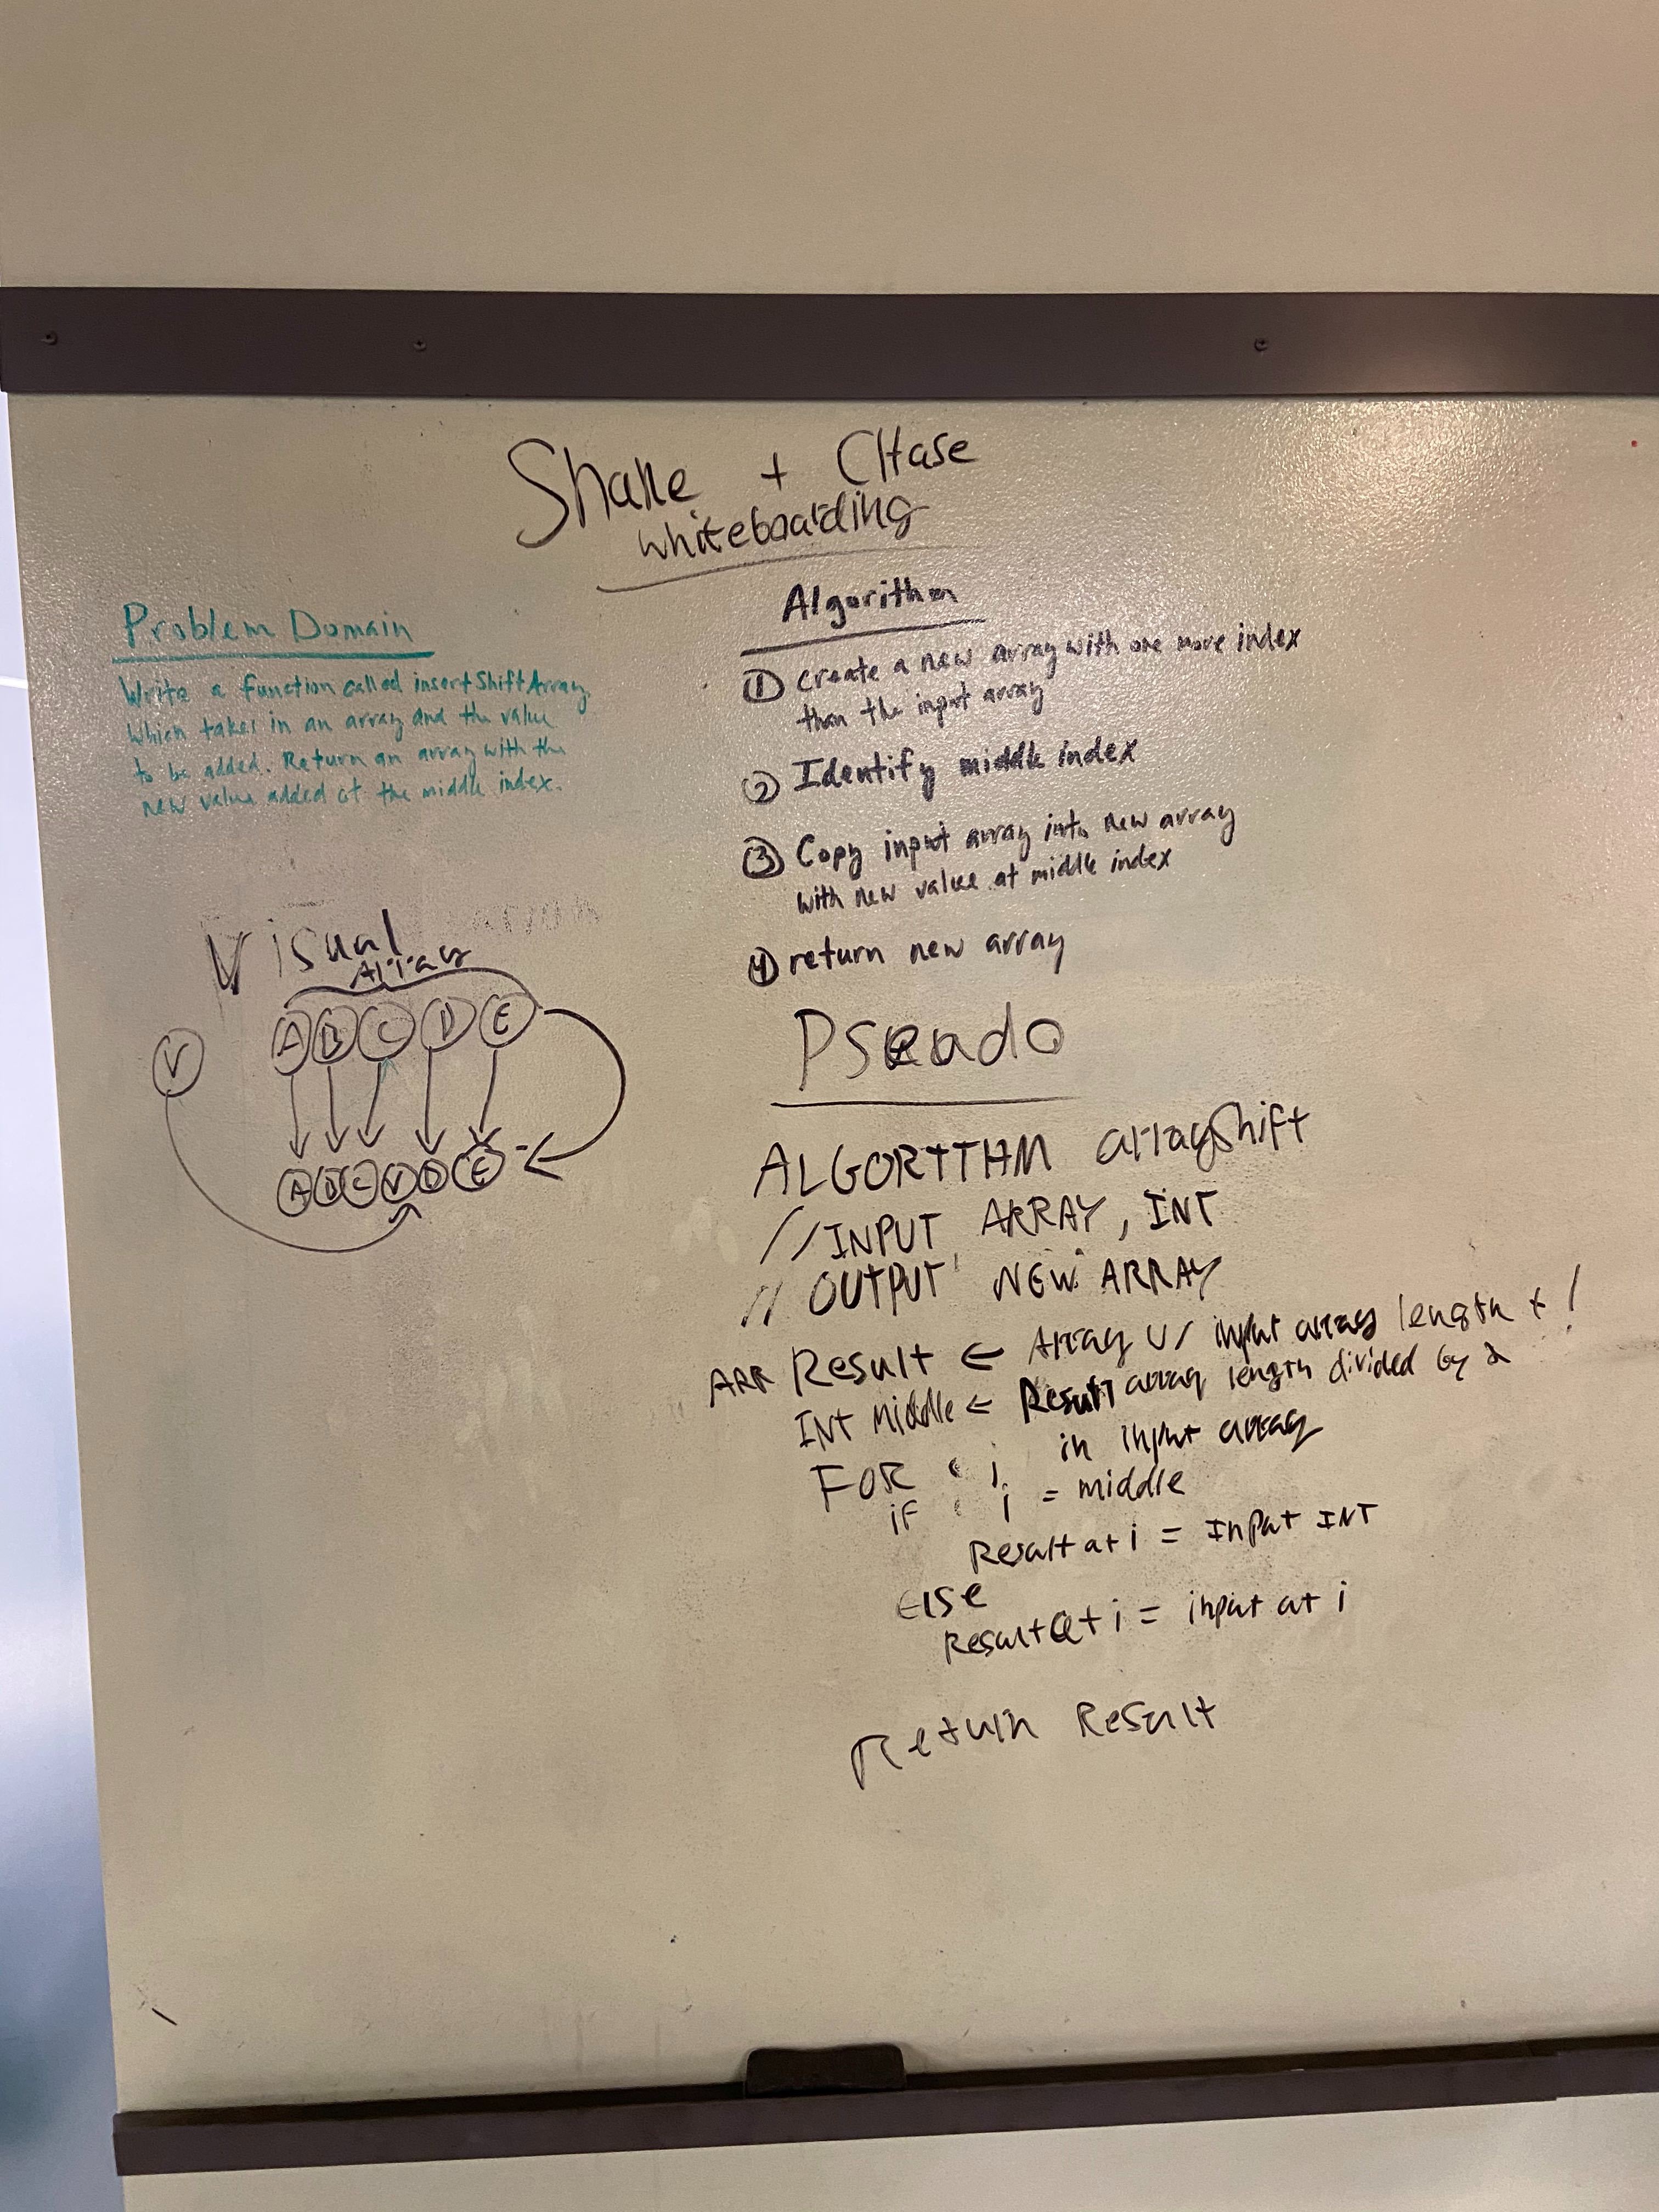 Shane + CHase
whiteboarding
Problem Domain
Write a function called insertShiftArray
which takes in an array and the value
to be added. Return an array with the
new value added at the middle index.
Visual
Array
A B C D E
V
A B C V D E
Algorithm
① create a new array with one more index
than the input array
② Identify middle index
③ Copy input array into new array
with new value at middle index
④ return new array
Pseudo
ALGORITHM arrayShift
// INPUT ARRAY, INT
// OUTPUT NEW ARRAY
ARR Result ← Array w/ input array length + 1
INT middle ← Result array length divided by 2
FOR i in input array
if i = middle
Result at i = Input INT
Else
Result at i = input at i
Return Result